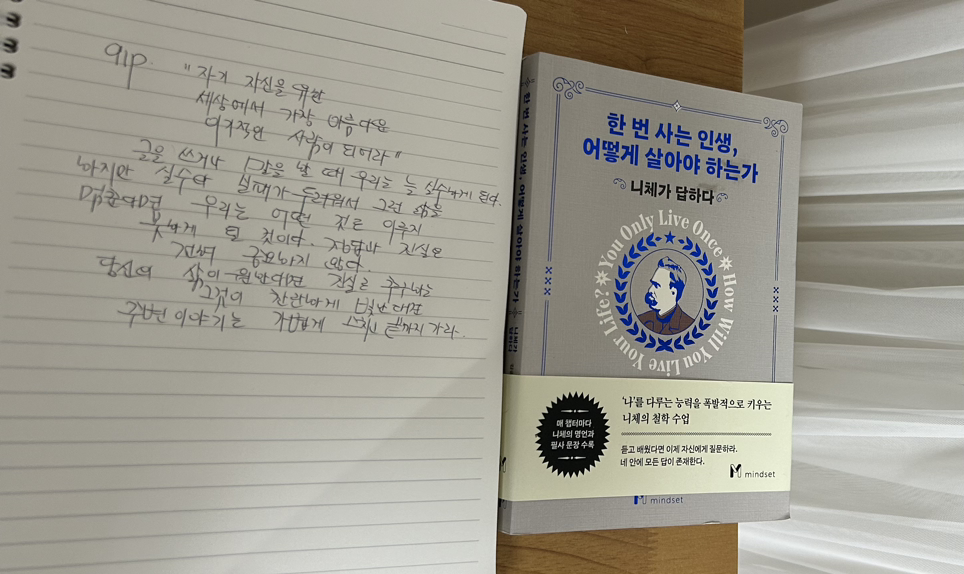 91p.
"자기 자신을 위한
세상에서 가장 아름다운
이기적인 사람이 되어라"
글을 쓰거나 말을 할 때 우리는 늘 실수하게 된다.
하지만 실수나 실패가 두려워서 그런 삶을
멈춘다면 우리는 어떤 것도 이루지
못하게 될 것이다. 자랑과 진실은
전혀 중요하지 않다.
당신의 삶이 원한다면 진실로 추구하는
그것이 찬란하게 빛난다면
주변 이야기는 가볍게 끝까지 가라.
한 번 사는 인생, 어떻게 살아야 하는가
니체가 답하다
한 번 사는 인생,
어떻게 살아야 하는가
니체가 답하다
You Only Live Once
How Will You Live Your Life?
매 챕터마다
니체의 명언과
필사 문장 수록
'나'를 다루는 능력을 폭발적으로 키우는
니체의 철학 수업
듣고 배웠다면 이제 자신에게 질문하라.
네 안에 모든 답이 존재한다.
mindset
mindset